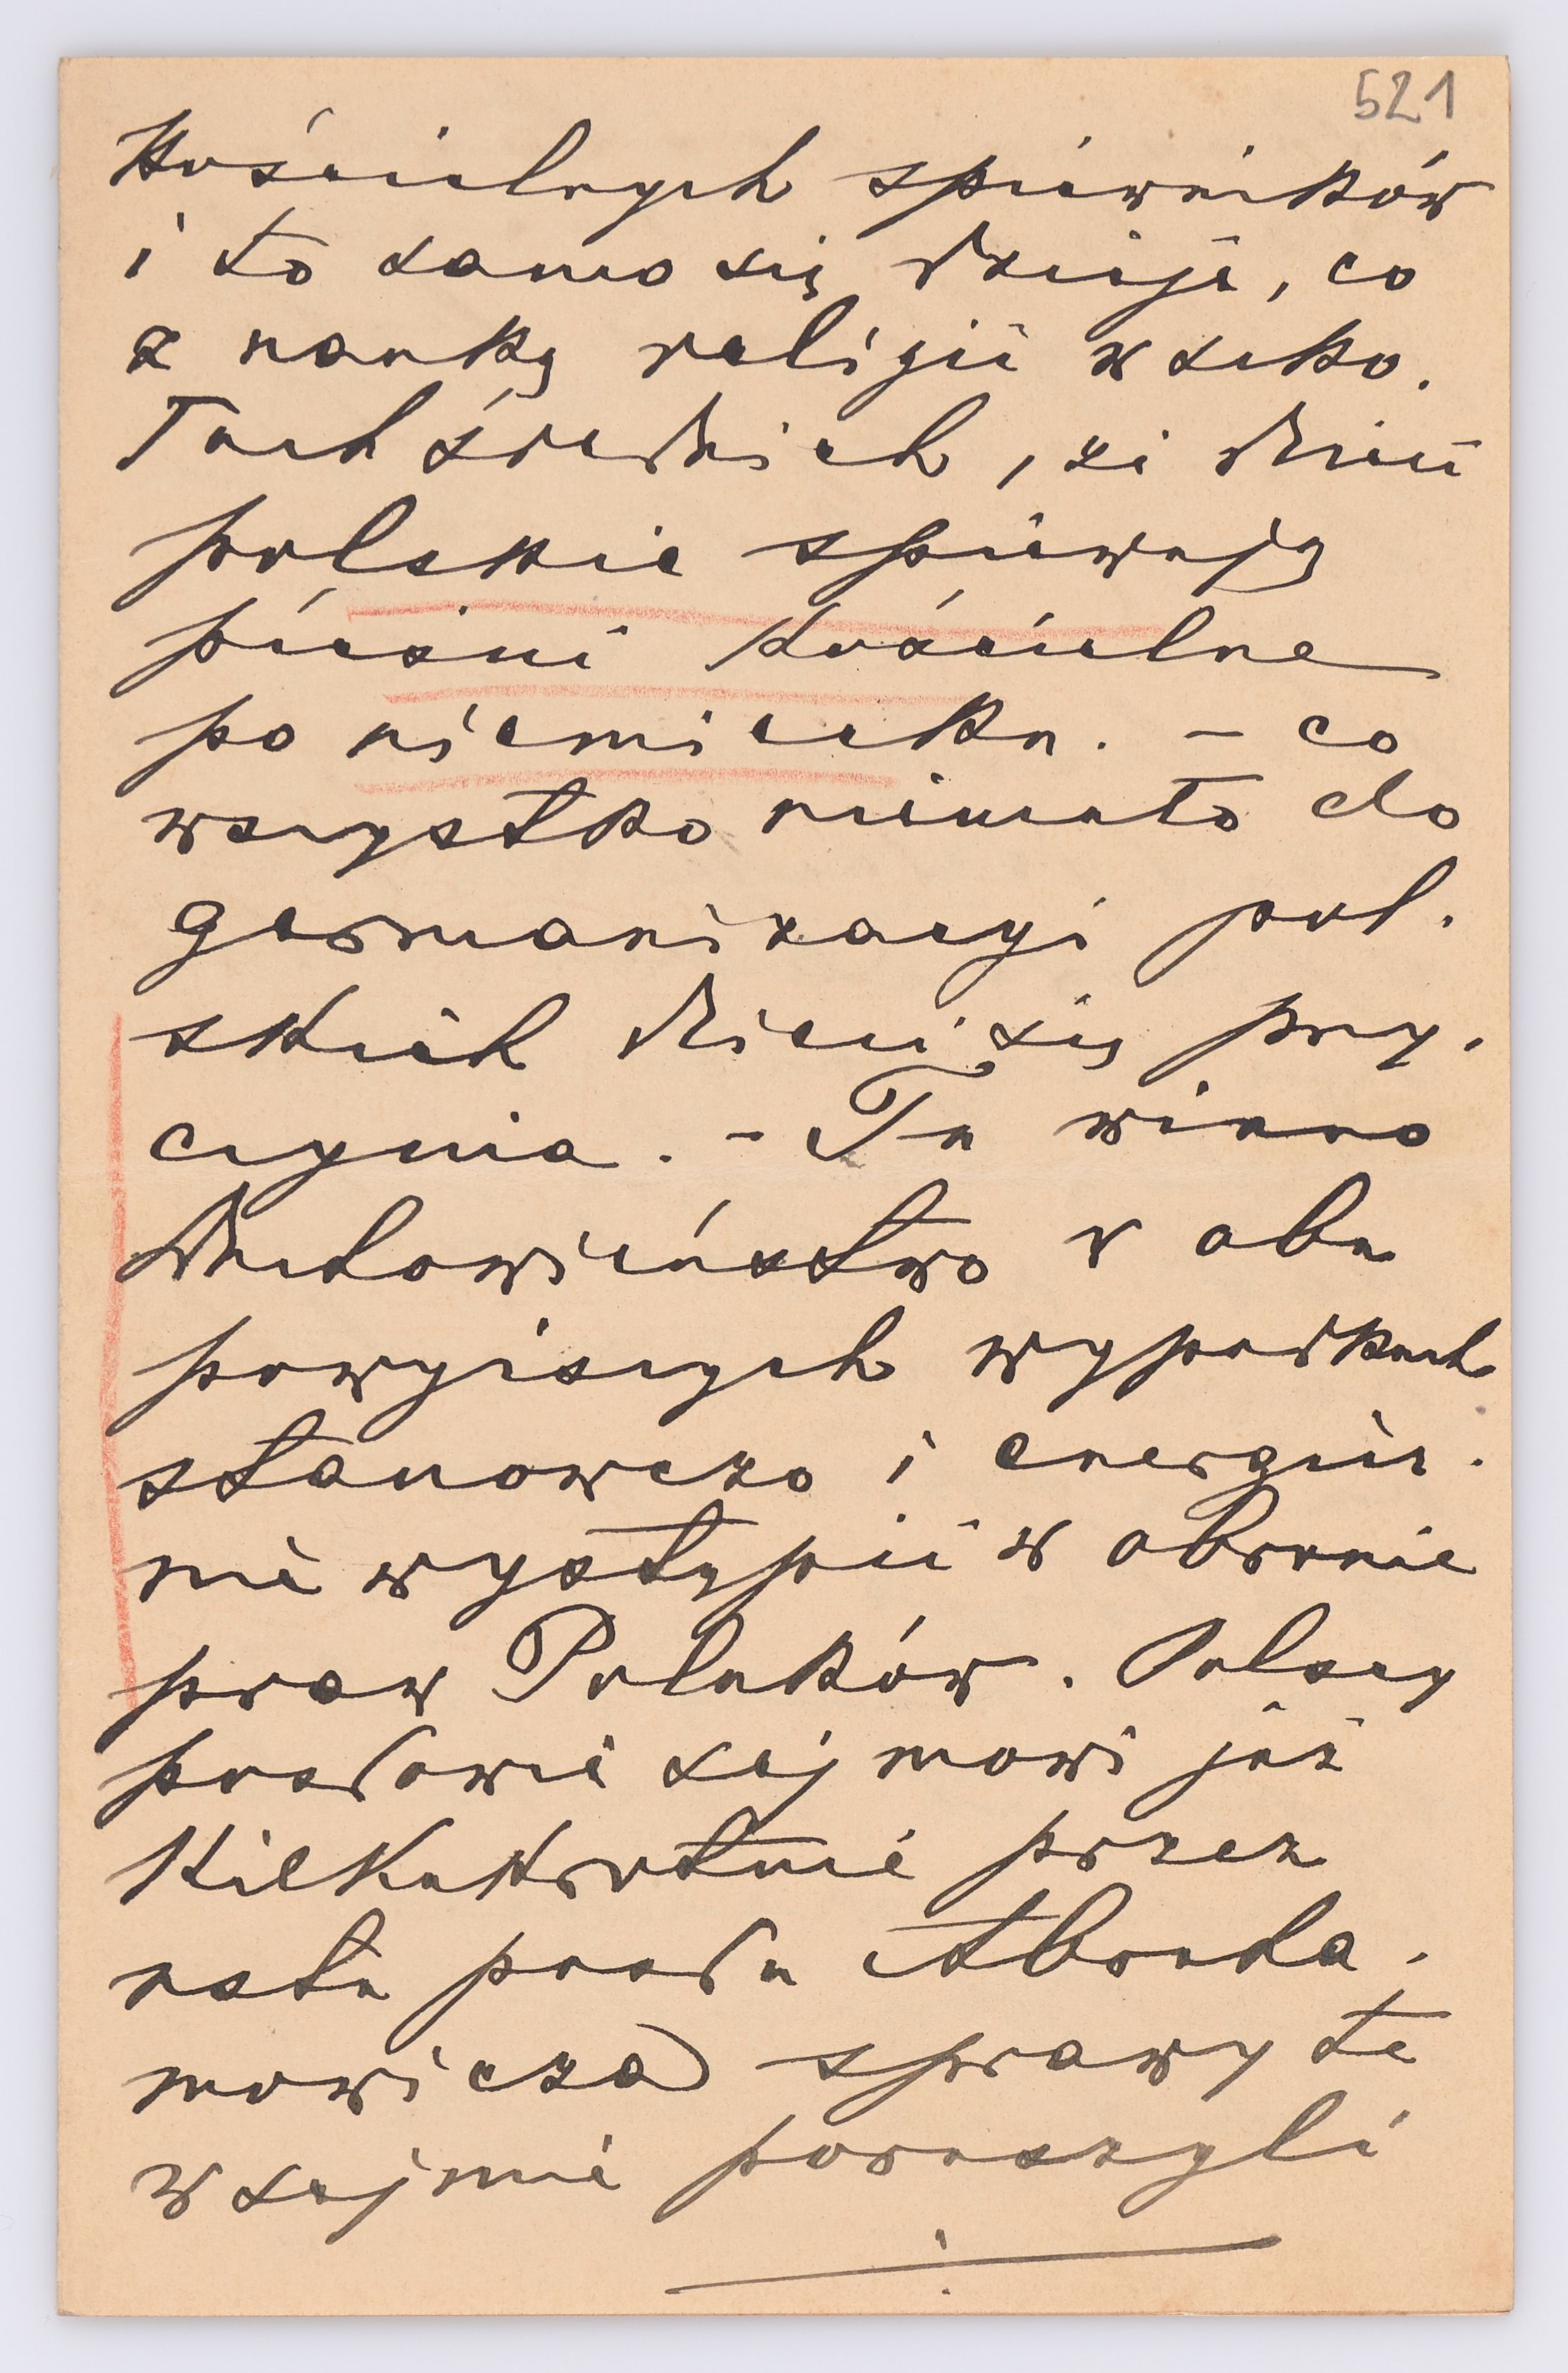 521
Kościelnych śpiewników
i to samo się dzieje, co
z nauką religii w szko.
łach średnich, że dzieci
polskie śpiewają
pieśni kościelne
po niemiecku. – co
wszystko niemało do
germanizacyi pol.
skich dzieci się przy.
czynia. – Tu winno
duchowieństwo w obu
powyższych wypadkach
stanowczo i energicz.
nie wystąpić w obronie
praw Polaków. Polscy
posłowie sejmowi już
Kilkakrotnie przez
usta posła Abraha.
mowicza sprawy te
w sejmie poruszyli